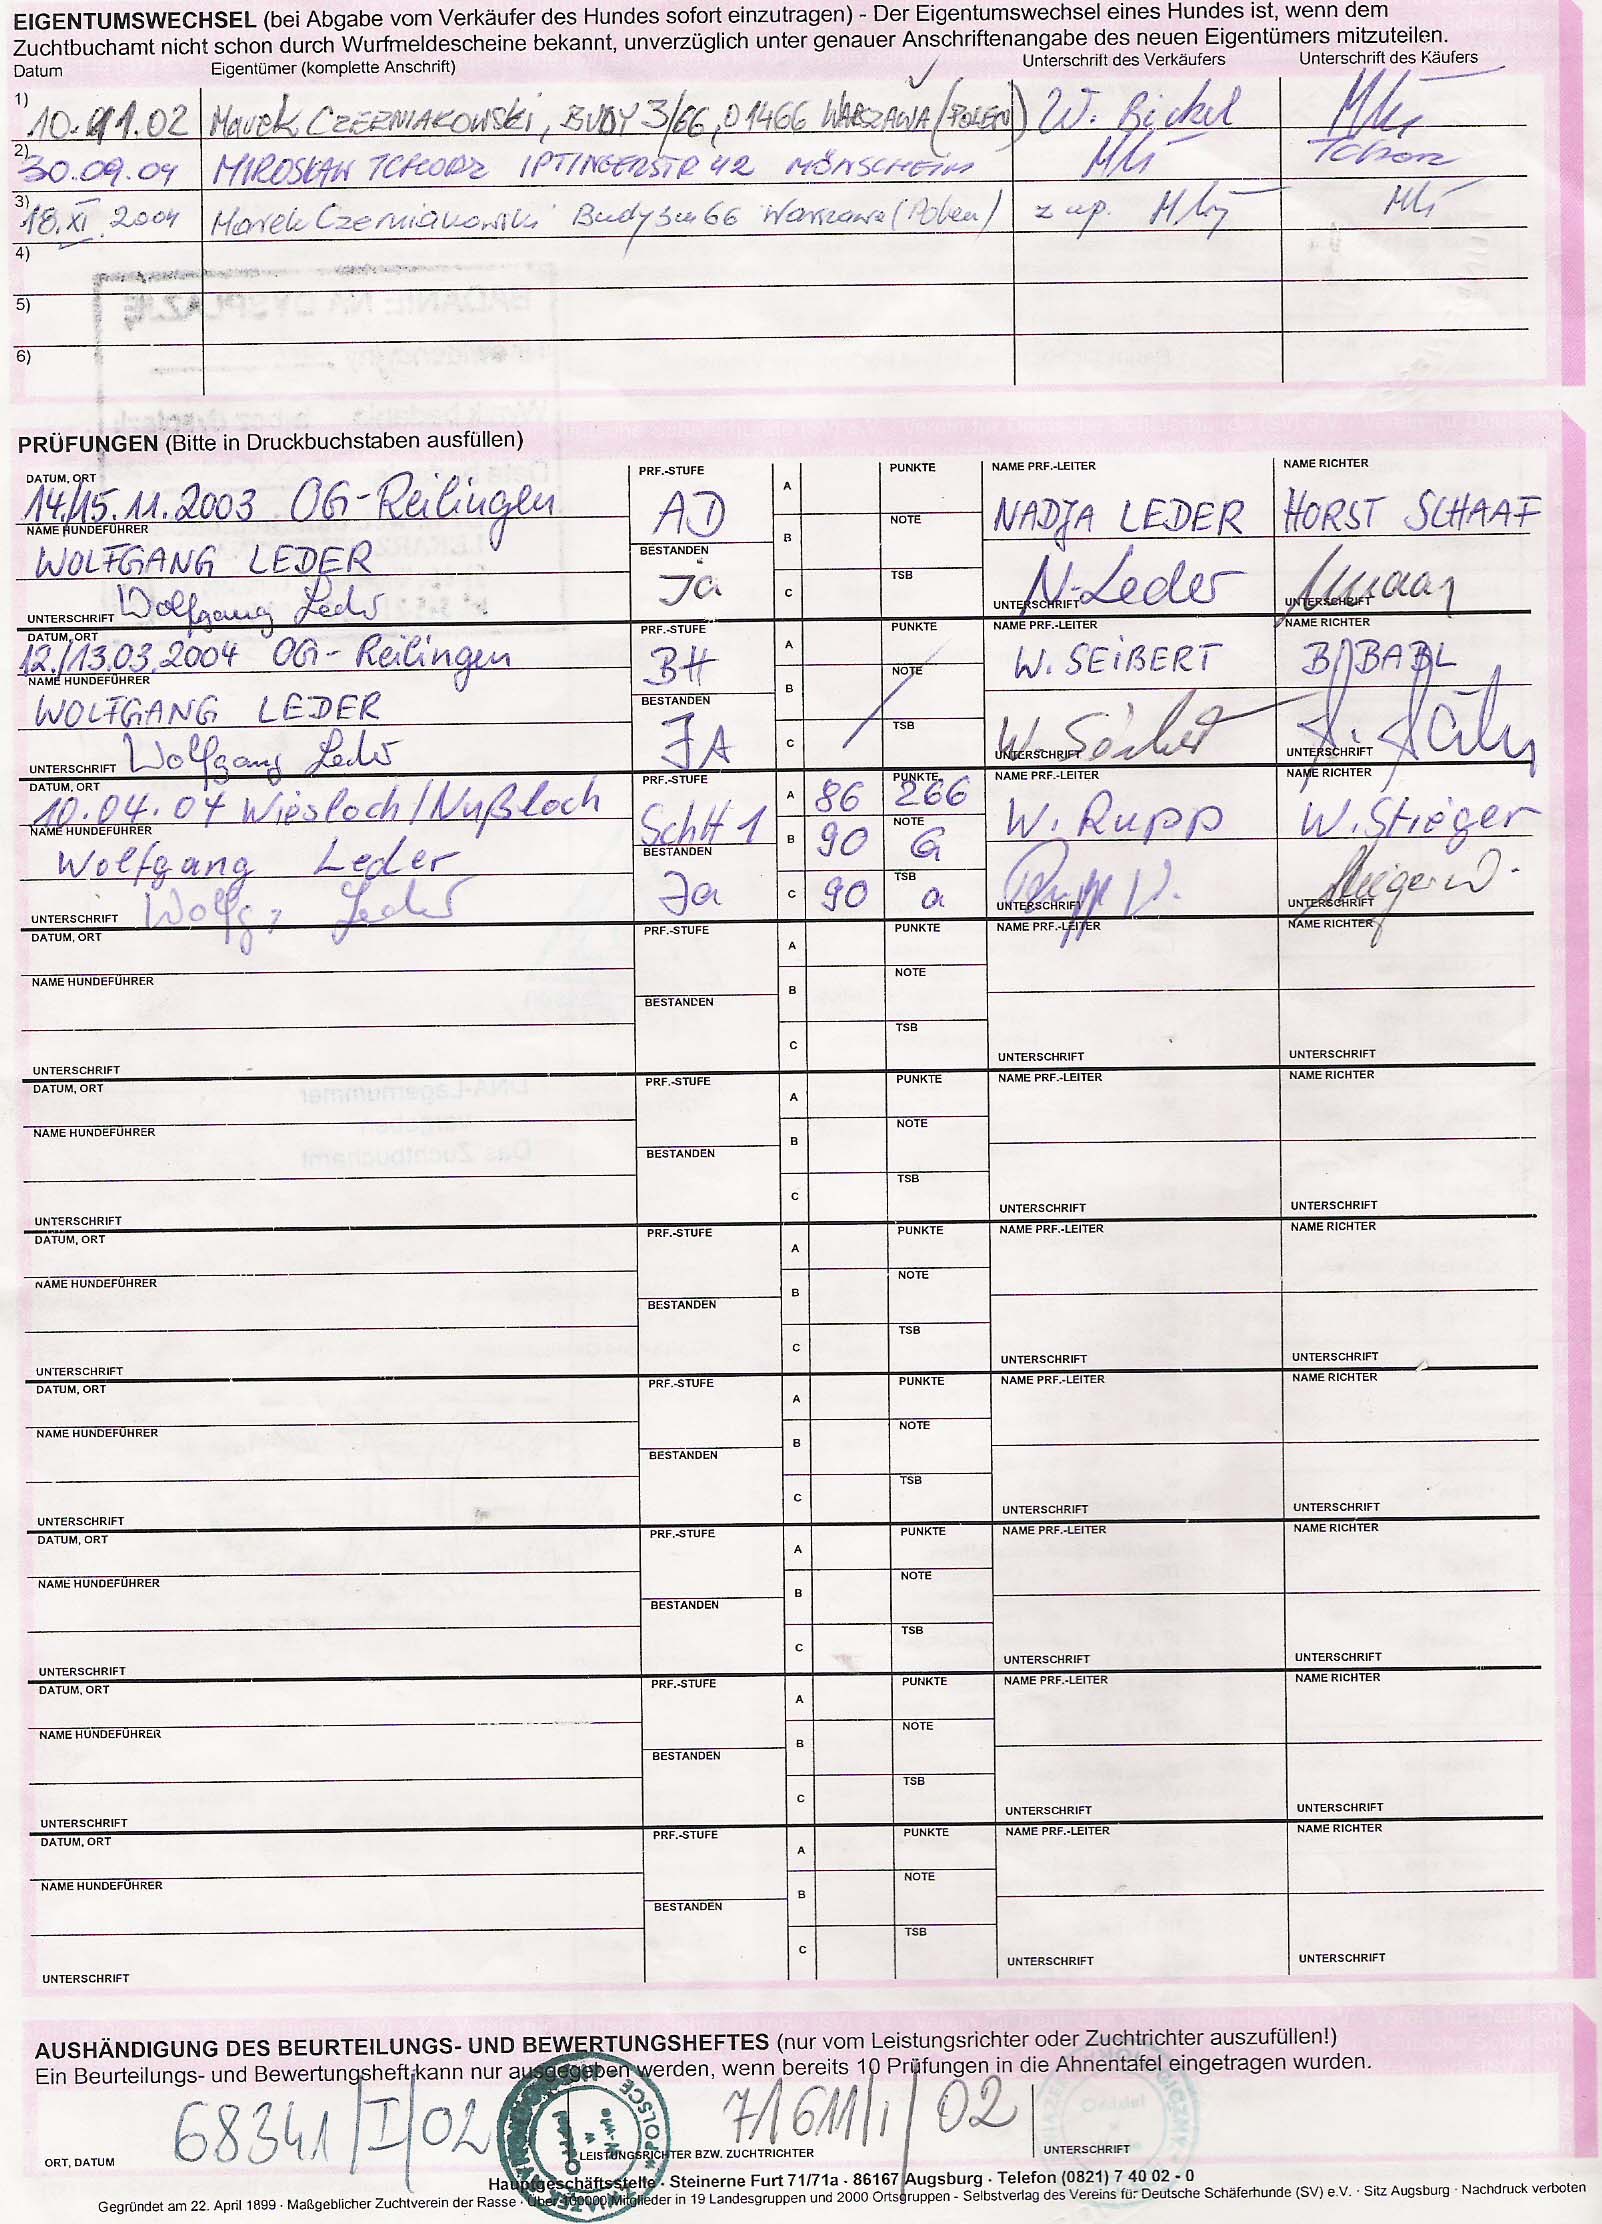 EIGENTUMSWECHSEL (bei Abgabe vom Verkäufer des Hundes sofort einzutragen) - Der Eigentumswechsel eines Hundes ist, wenn dem
Zuchtbuchamt nicht schon durch Wurfmeldescheine bekannt, unverzüglich unter genauer Anschriftenangabe des neuen Eigentümers mitzuteilen.
Datum Eigentümer (komplette Anschrift) Unterschrift des Verkäufers Unterschrift des Käufers
1) 10.11.02 Marek CZERNIAKOWSKI, BUDY 3/66, 01466 WARSZAWA (POLEN) W. Bickel
2) 30.09.04 MIROSŁAW TCHORZ IPTINGERSTR 42 MÖNSCHEIM Tchorz
3) 18.XI.2004 Marek Czerniakowski Budy 3m66 Warszawa (Polen) z up.
4)
5)
6)
PRÜFUNGEN (Bitte in Druckbuchstaben ausfüllen)
DATUM, ORT PRF.-STUFE A PUNKTE NAME PRF.-LEITER NAME RICHTER
14./15.11.2003 OG-Reilingen AD NADJA LEDER HORST SCHAAF
NAME HUNDEFÜHRER B NOTE
WOLFGANG LEDER BESTANDEN Ja N. Leder
UNTERSCHRIFT Wolfgang Leder C TSB UNTERSCHRIFT UNTERSCHRIFT
DATUM, ORT PRF.-STUFE A PUNKTE NAME PRF.-LEITER NAME RICHTER
12./13.03.2004 OG-Reilingen BH W. SEIBERT BABL
NAME HUNDEFÜHRER B NOTE
WOLFGANG LEDER BESTANDEN JA
UNTERSCHRIFT Wolfgang Leder C TSB UNTERSCHRIFT UNTERSCHRIFT
DATUM, ORT PRF.-STUFE A 86 PUNKTE 266 NAME PRF.-LEITER NAME RICHTER
10.04.04 Wiesloch/Nußloch SchH 1 W. Rupp W. Stieger
NAME HUNDEFÜHRER B 90 NOTE G
Wolfgang Leder BESTANDEN Ja
UNTERSCHRIFT Wolfg. Leder C 90 TSB a UNTERSCHRIFT UNTERSCHRIFT
DATUM, ORT PRF.-STUFE A PUNKTE NAME PRF.-LEITER NAME RICHTER
NAME HUNDEFÜHRER B NOTE
BESTANDEN
UNTERSCHRIFT C TSB UNTERSCHRIFT UNTERSCHRIFT
DATUM, ORT PRF.-STUFE A PUNKTE NAME PRF.-LEITER NAME RICHTER
NAME HUNDEFÜHRER B NOTE
BESTANDEN
UNTERSCHRIFT C TSB UNTERSCHRIFT UNTERSCHRIFT
DATUM, ORT PRF.-STUFE A PUNKTE NAME PRF.-LEITER NAME RICHTER
NAME HUNDEFÜHRER B NOTE
BESTANDEN
UNTERSCHRIFT C TSB UNTERSCHRIFT UNTERSCHRIFT
DATUM, ORT PRF.-STUFE A PUNKTE NAME PRF.-LEITER NAME RICHTER
NAME HUNDEFÜHRER B NOTE
BESTANDEN
UNTERSCHRIFT C TSB UNTERSCHRIFT UNTERSCHRIFT
DATUM, ORT PRF.-STUFE A PUNKTE NAME PRF.-LEITER NAME RICHTER
NAME HUNDEFÜHRER B NOTE
BESTANDEN
UNTERSCHRIFT C TSB UNTERSCHRIFT UNTERSCHRIFT
DATUM, ORT PRF.-STUFE A PUNKTE NAME PRF.-LEITER NAME RICHTER
NAME HUNDEFÜHRER B NOTE
BESTANDEN
UNTERSCHRIFT C TSB UNTERSCHRIFT UNTERSCHRIFT
DATUM, ORT PRF.-STUFE A PUNKTE NAME PRF.-LEITER NAME RICHTER
NAME HUNDEFÜHRER B NOTE
BESTANDEN
UNTERSCHRIFT C TSB UNTERSCHRIFT UNTERSCHRIFT
AUSHÄNDIGUNG DES BEURTEILUNGS- UND BEWERTUNGSHEFTES (nur vom Leistungsrichter oder Zuchtrichter auszufüllen!)
Ein Beurteilungs- und Bewertungsheft kann nur ausgegeben werden, wenn bereits 10 Prüfungen in die Ahnentafel eingetragen wurden.
68341/I/02 71611/I/02
ORT, DATUM LEISTUNGSRICHTER BZW. ZUCHTRICHTER UNTERSCHRIFT
Hauptgeschäftsstelle · Steinerne Furt 71/71a · 86167 Augsburg · Telefon (0821) 7 40 02 - 0
Gegründet am 22. April 1899 · Maßgeblicher Zuchtverein der Rasse · Über 100000 Mitglieder in 19 Landesgruppen und 2000 Ortsgruppen - Selbstverlag des Vereins für Deutsche Schäferhunde (SV) e.V. · Sitz Augsburg · Nachdruck verboten